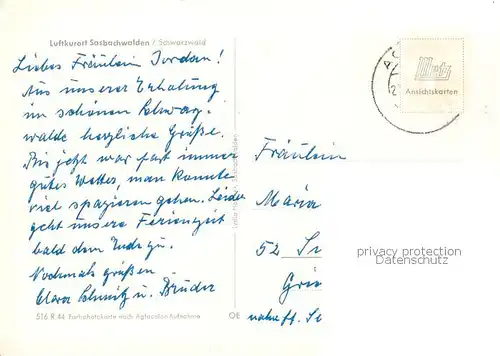 Luftkurort Sasbachwalden / Schwarzwald
Liebes Fräulein Jordan!
Aus unserer Erholung
im schönen Schwarz-
walde herzliche Grüße.
Bis jetzt war fast immer
gutes Wetter, man konnte
viel spazieren gehen. Leider
geht unsere Ferienzeit
bald dem Ende zu.
Nochmals grüßen
Clara Schmitz u. Bruder
516 R 44 Farbphotokarte nach Agfacolor-Aufnahme
Ansichtskarten
Fräulein
Maria
52
privacy protection
Datenschutz